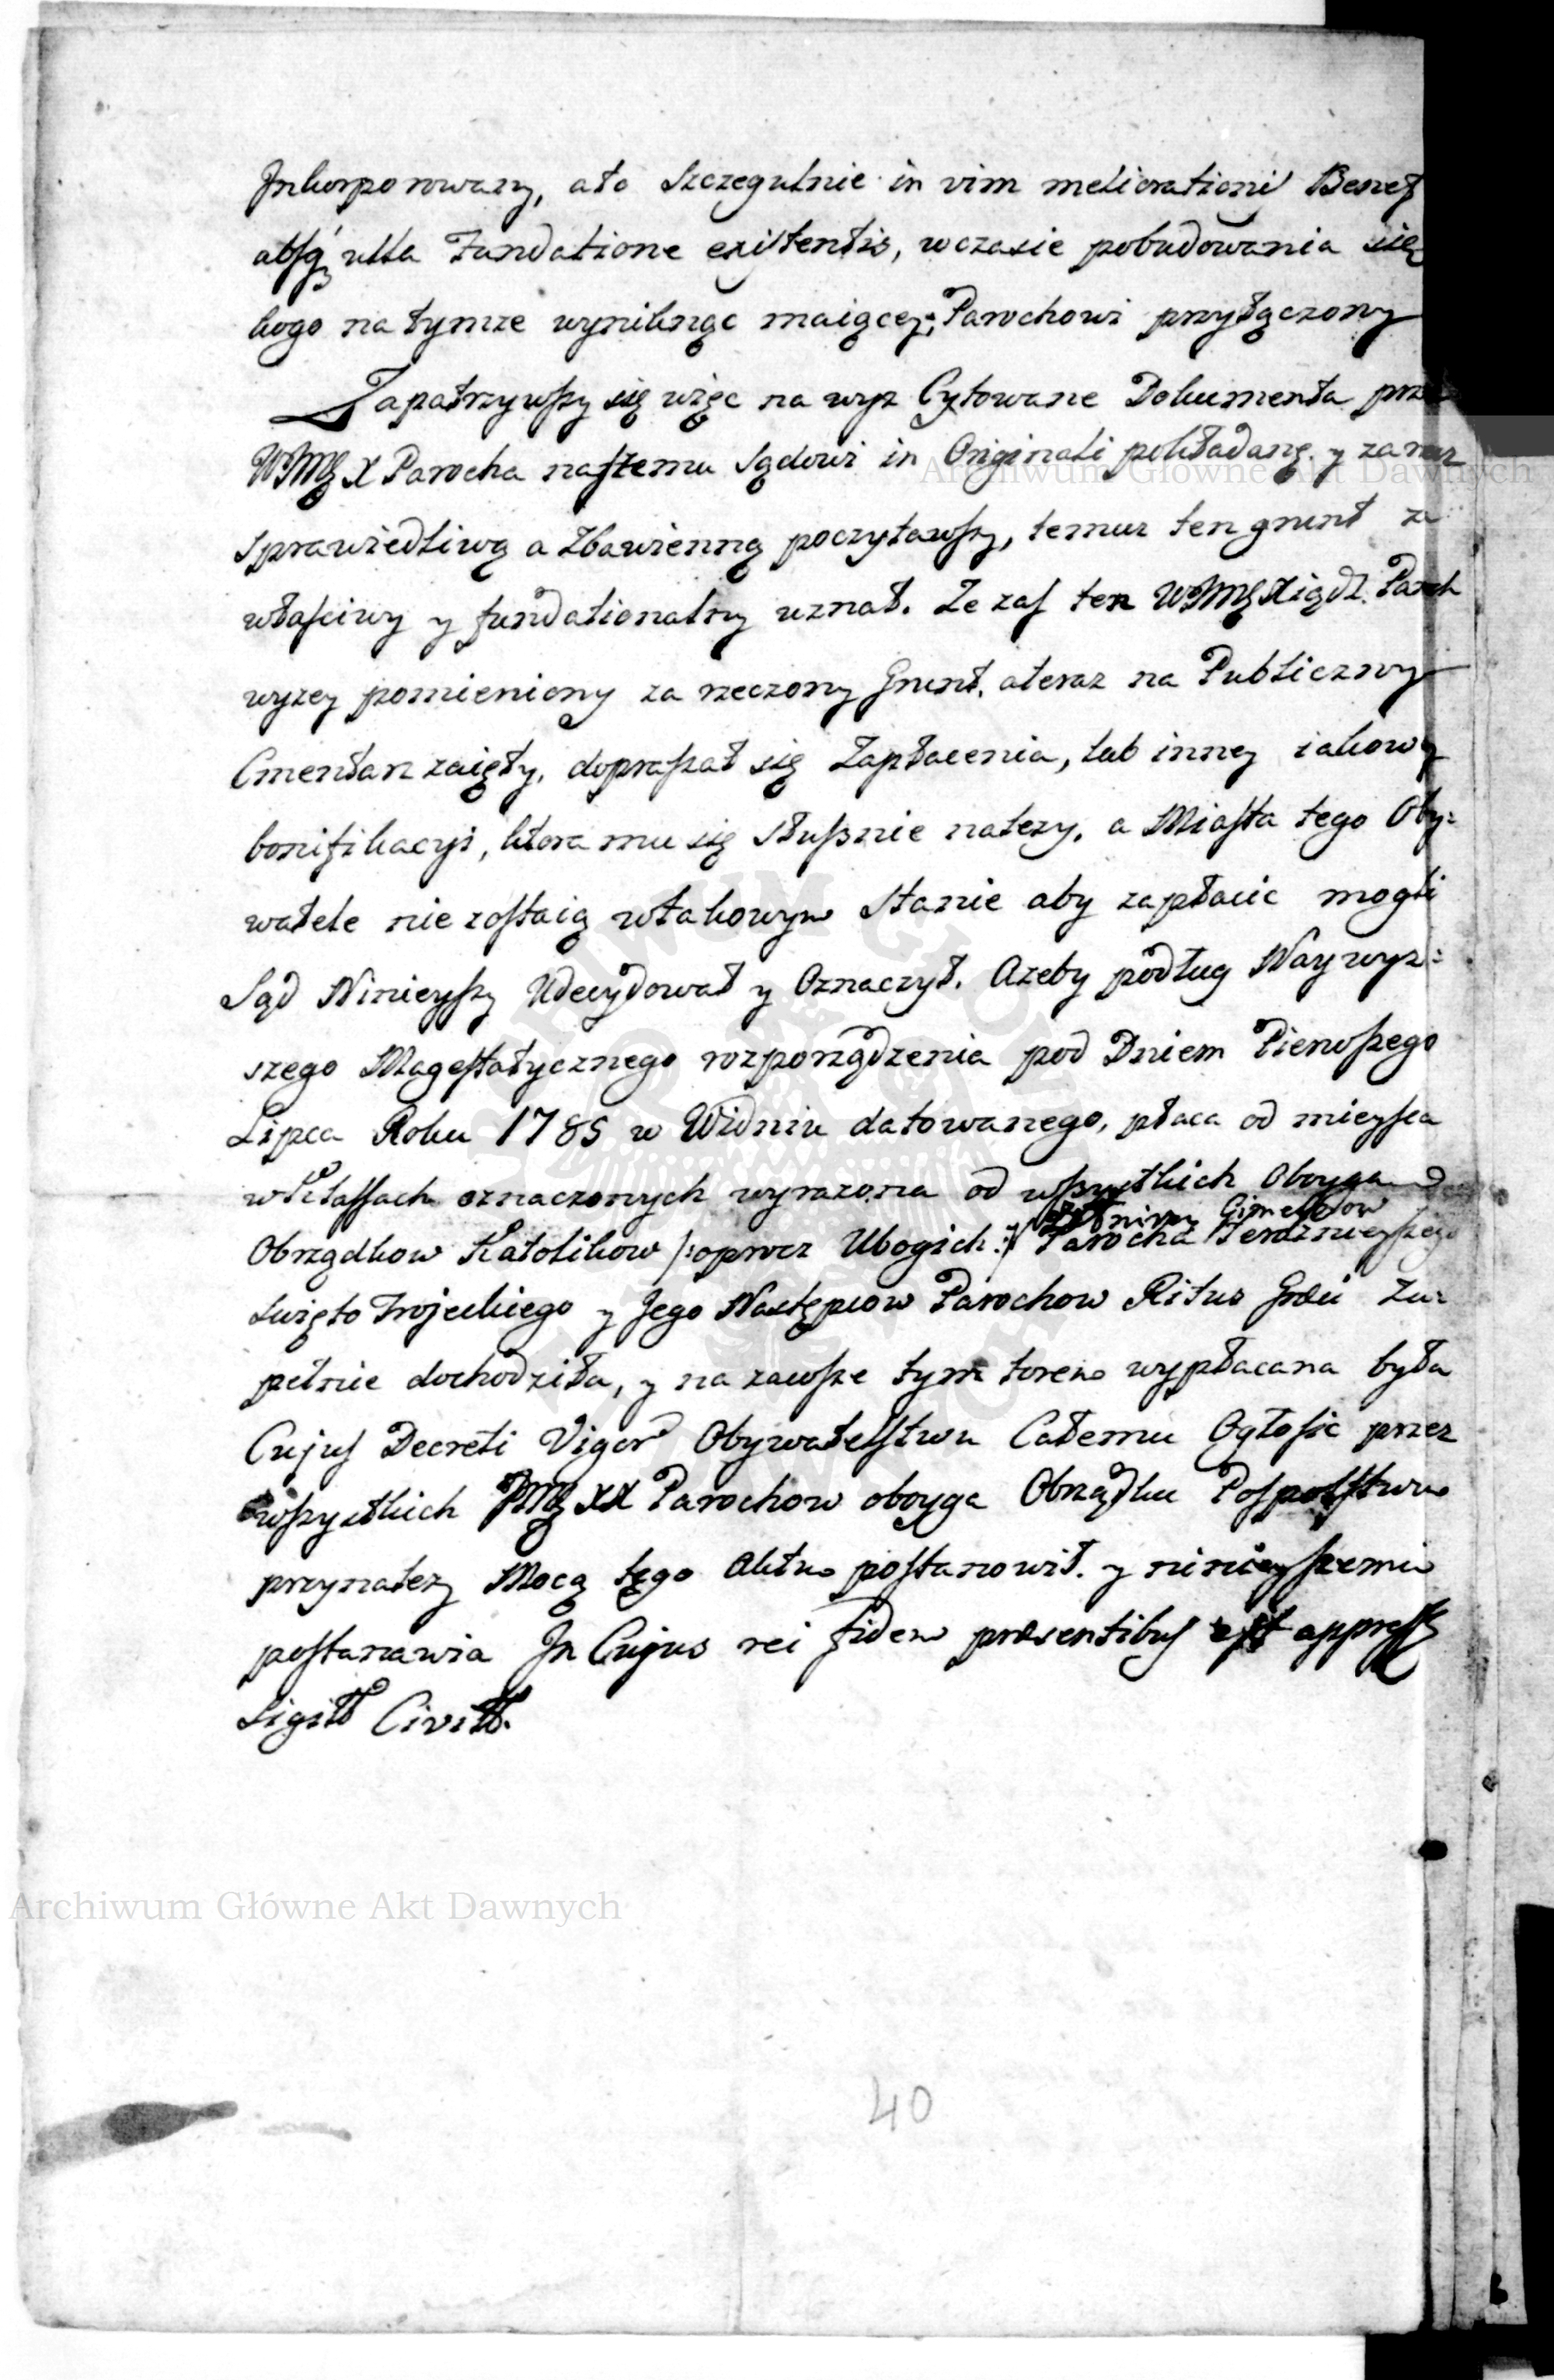 Inkorporowany, ato Szczegulnie in vim meliorationis Benef
absq ulla Fundatione existentis, wczasie pobudowania się
kogo na tymze wyniknąc maiącey, Parochowi przyłączony
Zapatrzywszy się więc na wyz Cytowane Dokumenta prze
WJMX Parocha naszemu Sądowi in Originali pokładane y za rzecz
Sprawiedliwą a Zbawienną poczytawszy, temuz ten grunt za
własciwy y fundationalny uznał. Ze zas ten WJMXiądz Paroch
wyzey pomieniony za rzeczony Grunt, ateraz na Publiczny
Cmentarz zaięty, dopraszał się Zapłacenia, lub inney iakowey
bonifikacyi, ktora mu się Słusznie nalezy, a Miasta tego Oby:
watele nie zostaią wtakowym Stanie aby zapłacic mogli
Sąd Ninieyszy Udecydował y Oznaczył. Azeby podług Naywyz:
szego Magestatycznego rozporządzenia pod Dniem Pierwszego
Lipca Roku 1785 w Widniu datowanego, płaca od mieysca
w Klassach oznaczonych wyrazona od wszystkich Oboyga
Gimełłow
Obrządkow Katolikow /:oprocz Ubogich:/ Parocha Teraznieyszego
Swięto Trojeckiego y Jego Następcow Parochow Ritus Græci Zu:
pełnie dochodziła, y na zawsze tym torem wypłacana była
Cujus Decreti Vigor Obywatelstwu Całemu Ogłosic przez
wszystkich JM XX Parochow oboyga Obrządku Pospolstwu
przynalezy Mocą tego Aktu postanowił. y ninieyszemi
postanawia In Cujus rei fidem præsentibus est appress
Sigill Civill.
40
Archiwum Główne Akt Dawnych
Archiwum Główne Akt Dawnych